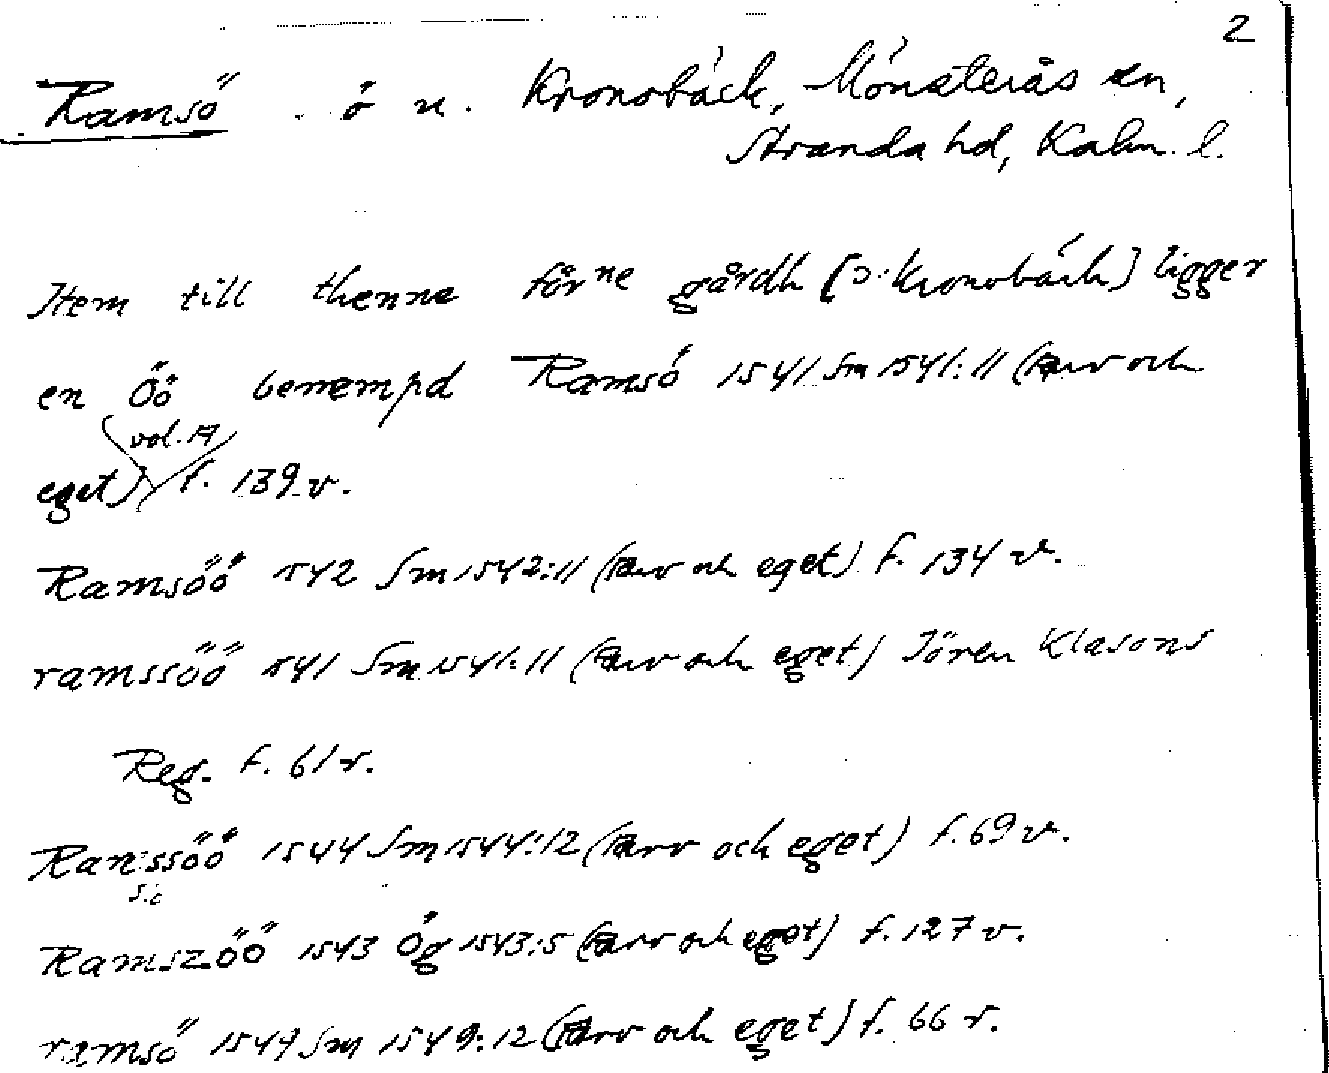 2
Ramsö . ö n. Kronobäck, Mönsterås sn,
Stranda hd, Kalm. l.
Item till thenne förne gårdh [ɔ: Kronobäck] ligger
en Öö benempd Ramsö 1541 Sm 1541:11 (Arv och
vol. 17
eget) f. 139 v.
Ramsöö 1542 Sm 1542:11 (Arv och eget) f. 134 v.
ramssöö 1541 Sm 1541:11 (Arv och eget) Jören Klasons
Reg. f. 61 r.
Ranssöö 1544 Sm 1544:12 (Arv och eget) f. 69 v.
sic
Ramszöö 1543 Ög 1543:5 (Arv och eget) f. 127 v.
ramsö 1549 Sm 1549:12 (Arv och eget) f. 66 r.